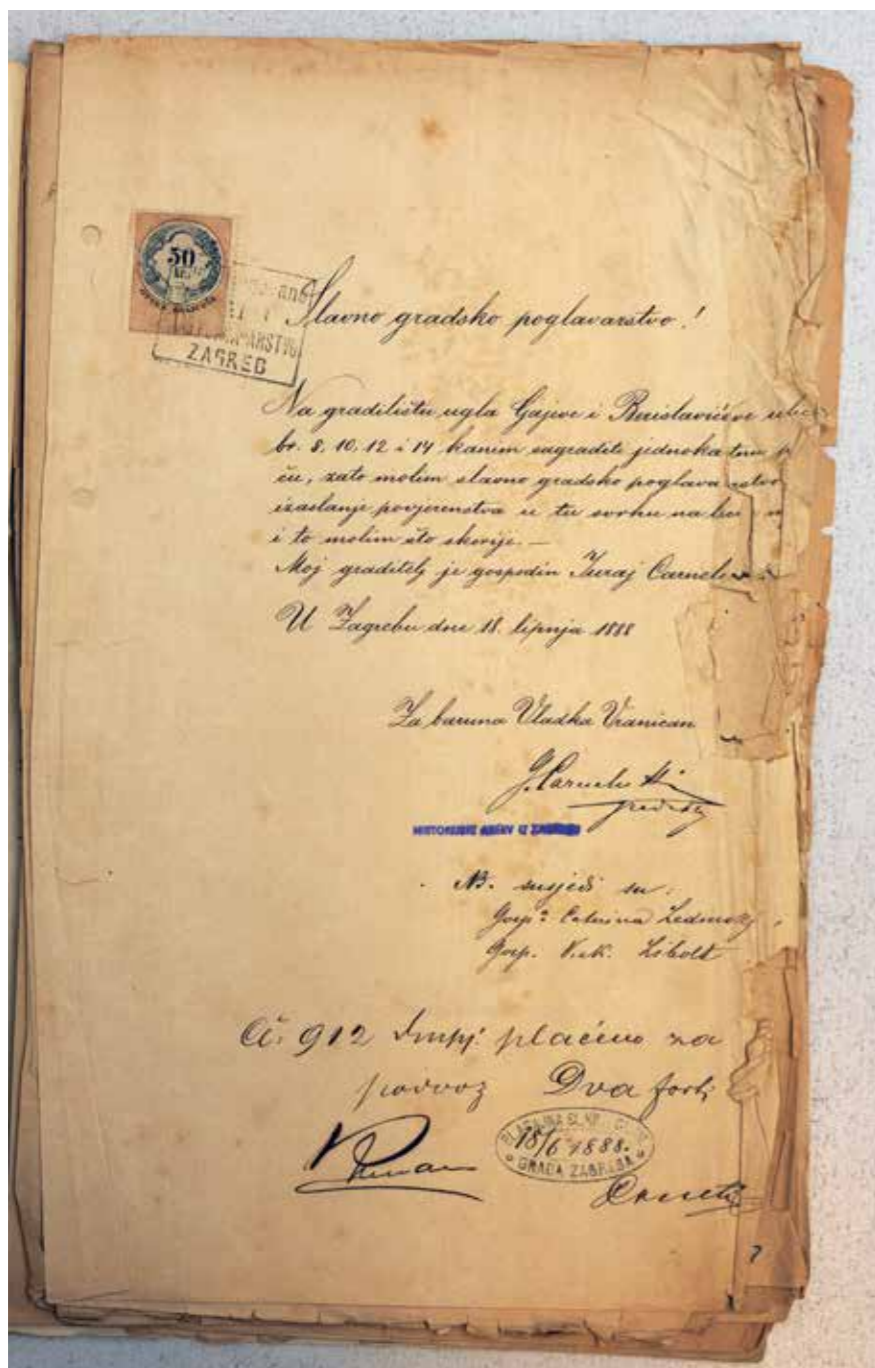 50
ZAGREB
Slavno gradsko poglavarstvo!
Na gradilištu ugla Gajeve i Berislavićeve
br. 8, 10, 12 i 14 kanim sagraditi jednokatnu
ću, zato molim slavno gradsko poglavarstvo
izaslanje povjerenstva u tu svrhu na
i to molim što skorije. —
Moj graditelj je gospodin Juraj
U Zagrebu dne 18. lipnja 1888
Za baruna Vladka Vranican
HISTORIJSKI ARHIV U ZAGREBU
NB. susjedi su:
Gosp.
Gosp.
912 plaćeno za
podvoz Dva
18/6 1888.
GRADA ZAGREBA
7